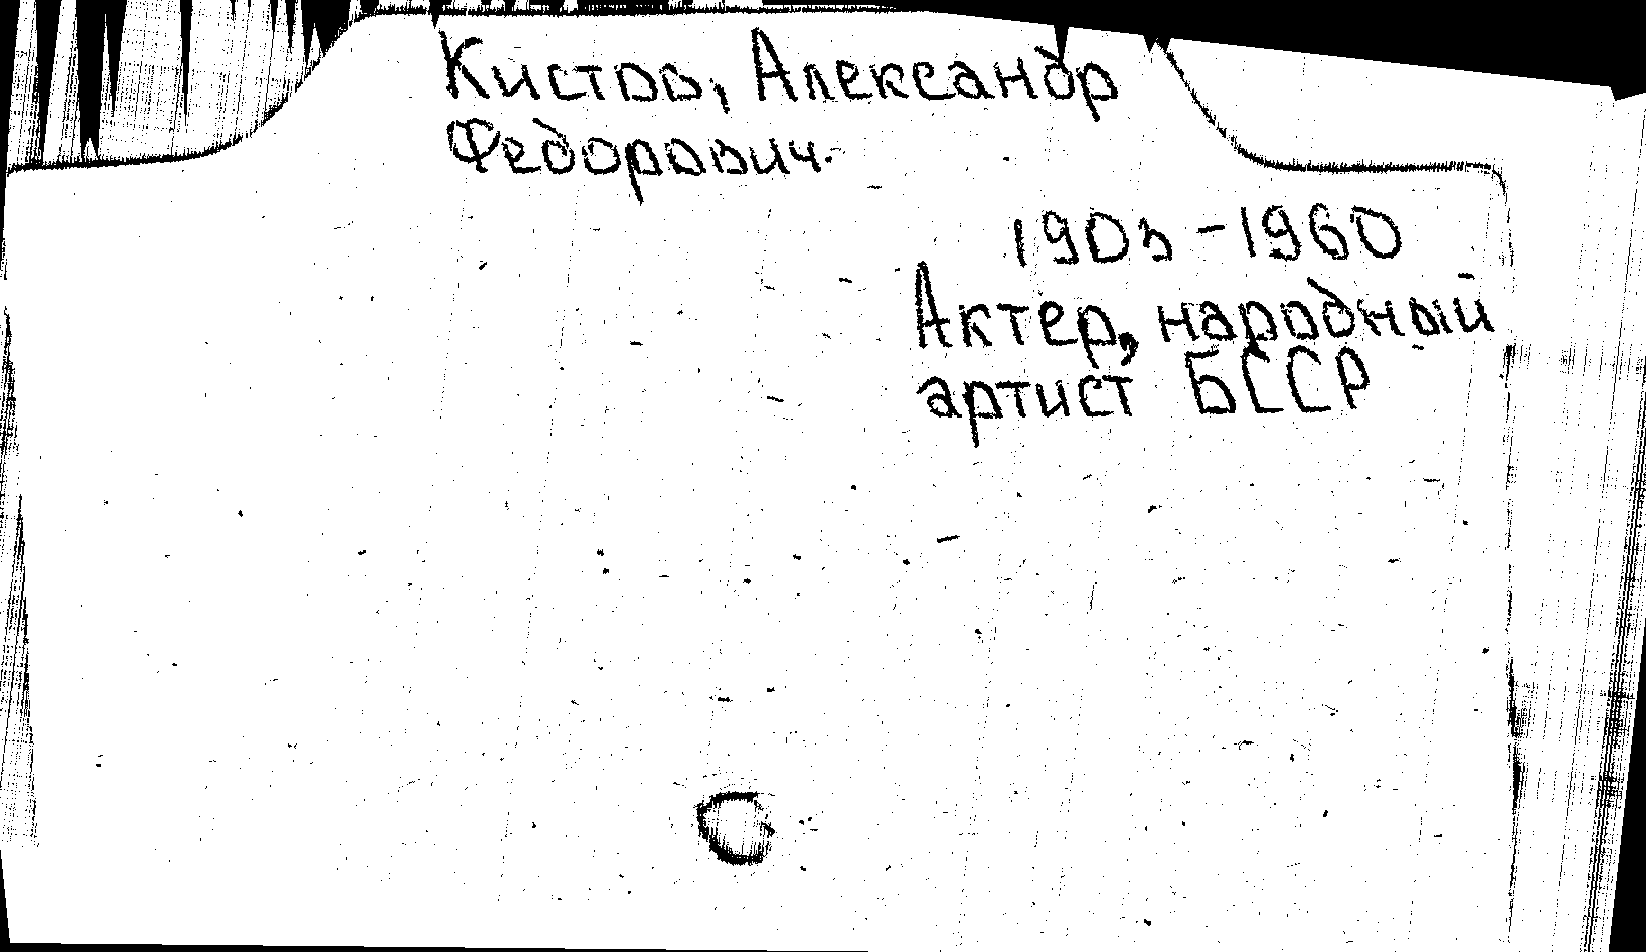 Кистов, Александр
Федорович.
1903-1960
Актер, народный
артист БССР